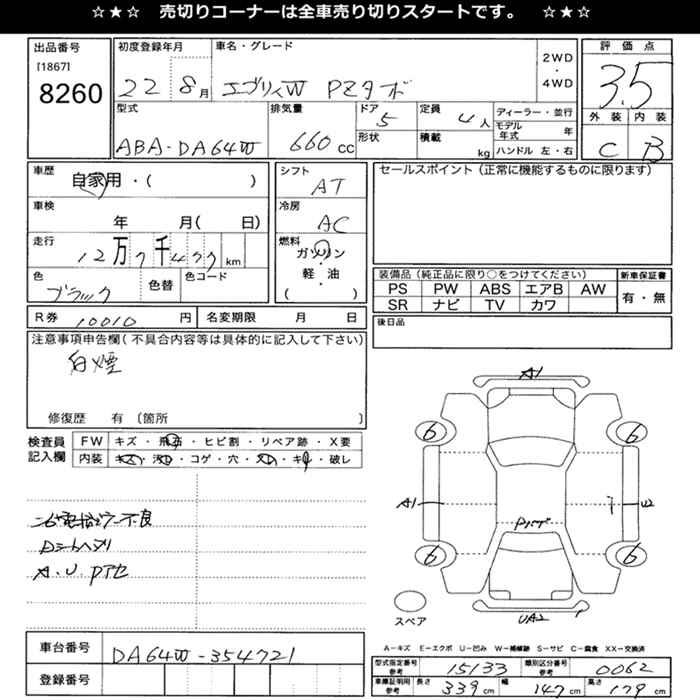 ☆★☆ 売切りコーナーは全車売り切りスタートです。 ☆★☆
出品番号
[1867]
8260
初度登録年月
22 8月
車名・グレード
エブリィW PZターボ
2WD
・
4WD
評価点
3.5
外装 内装
C B
型式
ABA-DA64W
排気量
660cc
ドア
5
形状
定員
4人
積載
kg
ディーラー・並行
モデル年式 年
ハンドル 左・右
車歴
自家用・( )
車検
年 月( 日)
走行
12万7千477km
色
ブラック
色替
色コード
シフト
AT
冷房
AC
燃料
ガソリン
・
軽・油
( )
セールスポイント(正常に機能するものに限ります)
装備品(純正品に限り○をつけてください)
PS PW ABS エアB AW
SR ナビ TV カワ
新車保証書
有・無
R券 10010円
名変期限 月 日
後日品
注意事項申告欄(不具合内容等は具体的に記入して下さい)
白煙
修復歴 有 〔箇所 〕
検査員記入欄
FW キズ・飛石・ヒビ割・リペア跡・X要
内装 キズ・汚れ・コゲ・穴・・キレ・破レ
不良
Dシートヘタリ
A.U.Pアセ
A1
6 6
A1
U2
Pハゲ
6 6
UA2
スペア
A-キズ E-エクボ U-凹み W-補修跡 S-サビ C-腐食 XX-交換済
車台番号 DA64W-354721
登録番号
型式指定番号参考 15133 類別区分番号参考 0062
車庫証明用参考 長さ 339cm 幅 147cm 高さ 179cm